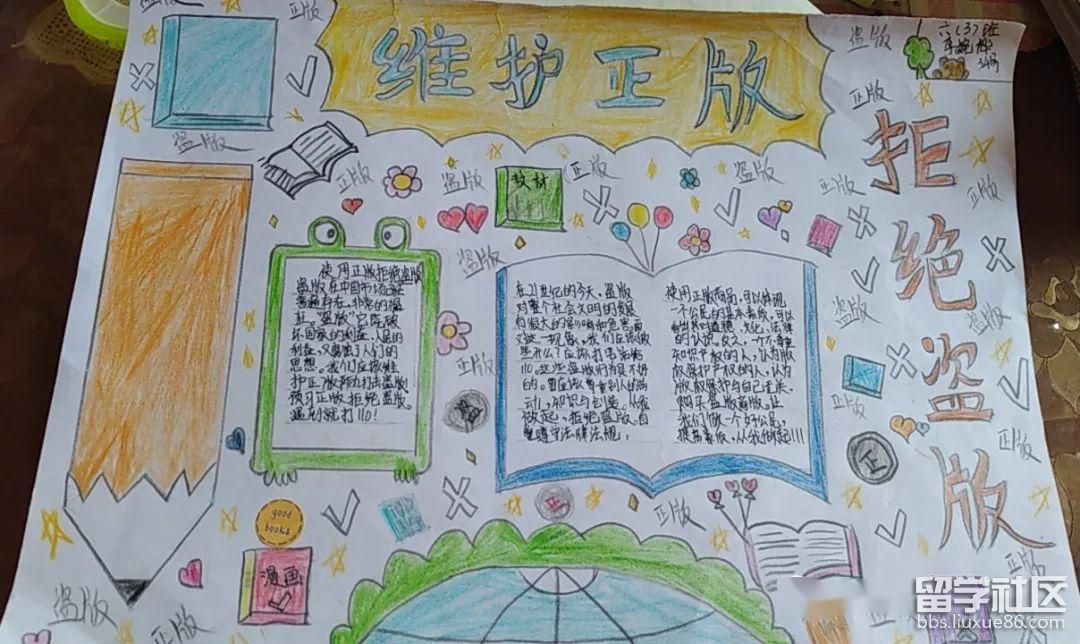 维护正版
拒绝盗版
六(3)班
正版
盗版
盗版
正版
盗版
正版
盗版
教材
正版
盗版
正版
正版
盗版
使用正版拒绝盗版
盗版在中国市场
普遍存在，非常的猖
狂，“盗版”它既破
坏国家的利益、人民的
利益，又腐蚀了人们的
思想。我们应该维
护正版努力打击盗版！
拒绝盗版。
遇到就打110！
在21世纪的今天，盗版
对整个社会文明的发展
有很大的影响和危害面
对这一现象，我们应该做
些什么？应该打电话给
110。这些盗版们为是不好
的。要应该尊重别人的劳
动，知识与创造。从我
做起，拒绝盗版，自
觉遵守法律法规，
使用正版商品，可以体现
一个公民的基本素质，可以
看出其对道德、文化、法律
的认识。反之，一个不尊重
知识产权的人，认为版
权保护产权的人，认为
版权保护与自己无关，
购买盗版商版。让
我们做一个好公民，
提高素质，从我做起！！！
盗版
正版
盗版
盗版
正版
正版
盗
正
正版
正
正版
good
books
漫画
盗版
正版
正版
留学社区
bbs.liuxue86.com